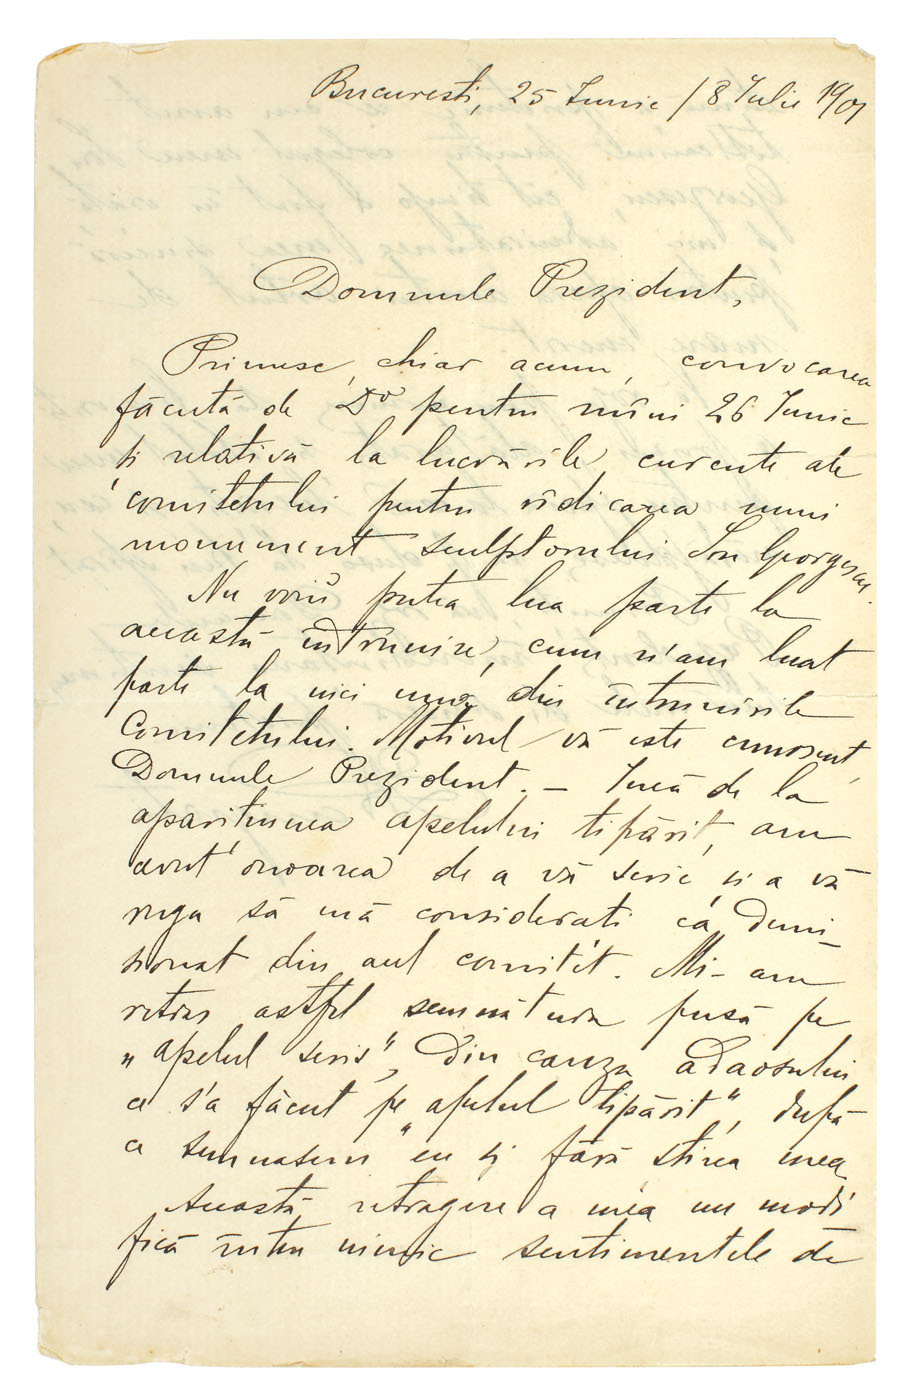 Bucuresti, 25 Iunie / 8 Iulie 1901
Domnule Prezident,
Primesc, chiar acum, convocarea
făcută de Dv pentru mîini 26 Iunie
și relativă la lucrările curente ale
comitetului pentru ridicarea unui
monument sculptorului Ion Georgescu.
Nu voiŭ putea lua parte la
această întrunire, cum n'am luat
parte la nici una din întrunirile
Comitetului. Motivul vă este cunoscut,
Domnule Prezident. – Încă de la
aparitiunea apelului tipărit, am
avut onoarea de a vă scrie și a vă
ruga să mă considerati ca demi-
sionat din acel comitet. Mi-am
retras astfel semnătura pusă pe
„apelul scris", din cauza adaosului
ce s'a făcut pe „apelul tipărit", după
ce semnasem eu și fără stirea mea.
Această retragere a mea nu modi
fică întru nimic sentimentele de